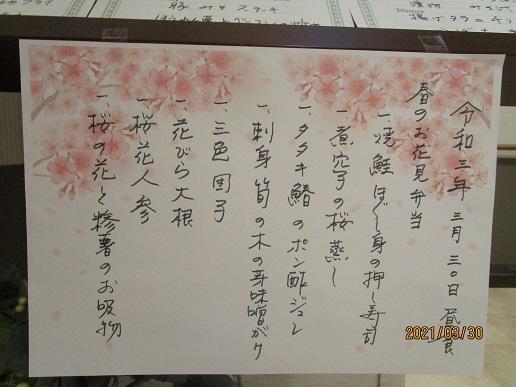 令和三年 三月 三〇日 昼膳
春のお花見弁当
一、焼鮭ほぐし身の押し寿司
一、煮穴子の桜蒸し
一、タタキ鰆のポン酢ジュレ
一、刺身筍の木の芽味噌がけ
一、三色団子
一、花びら大根
一、桜花人参
一、桜の花と糝薯のお吸物
2021/03/30
フライ
豚みそステーキ
Dinner